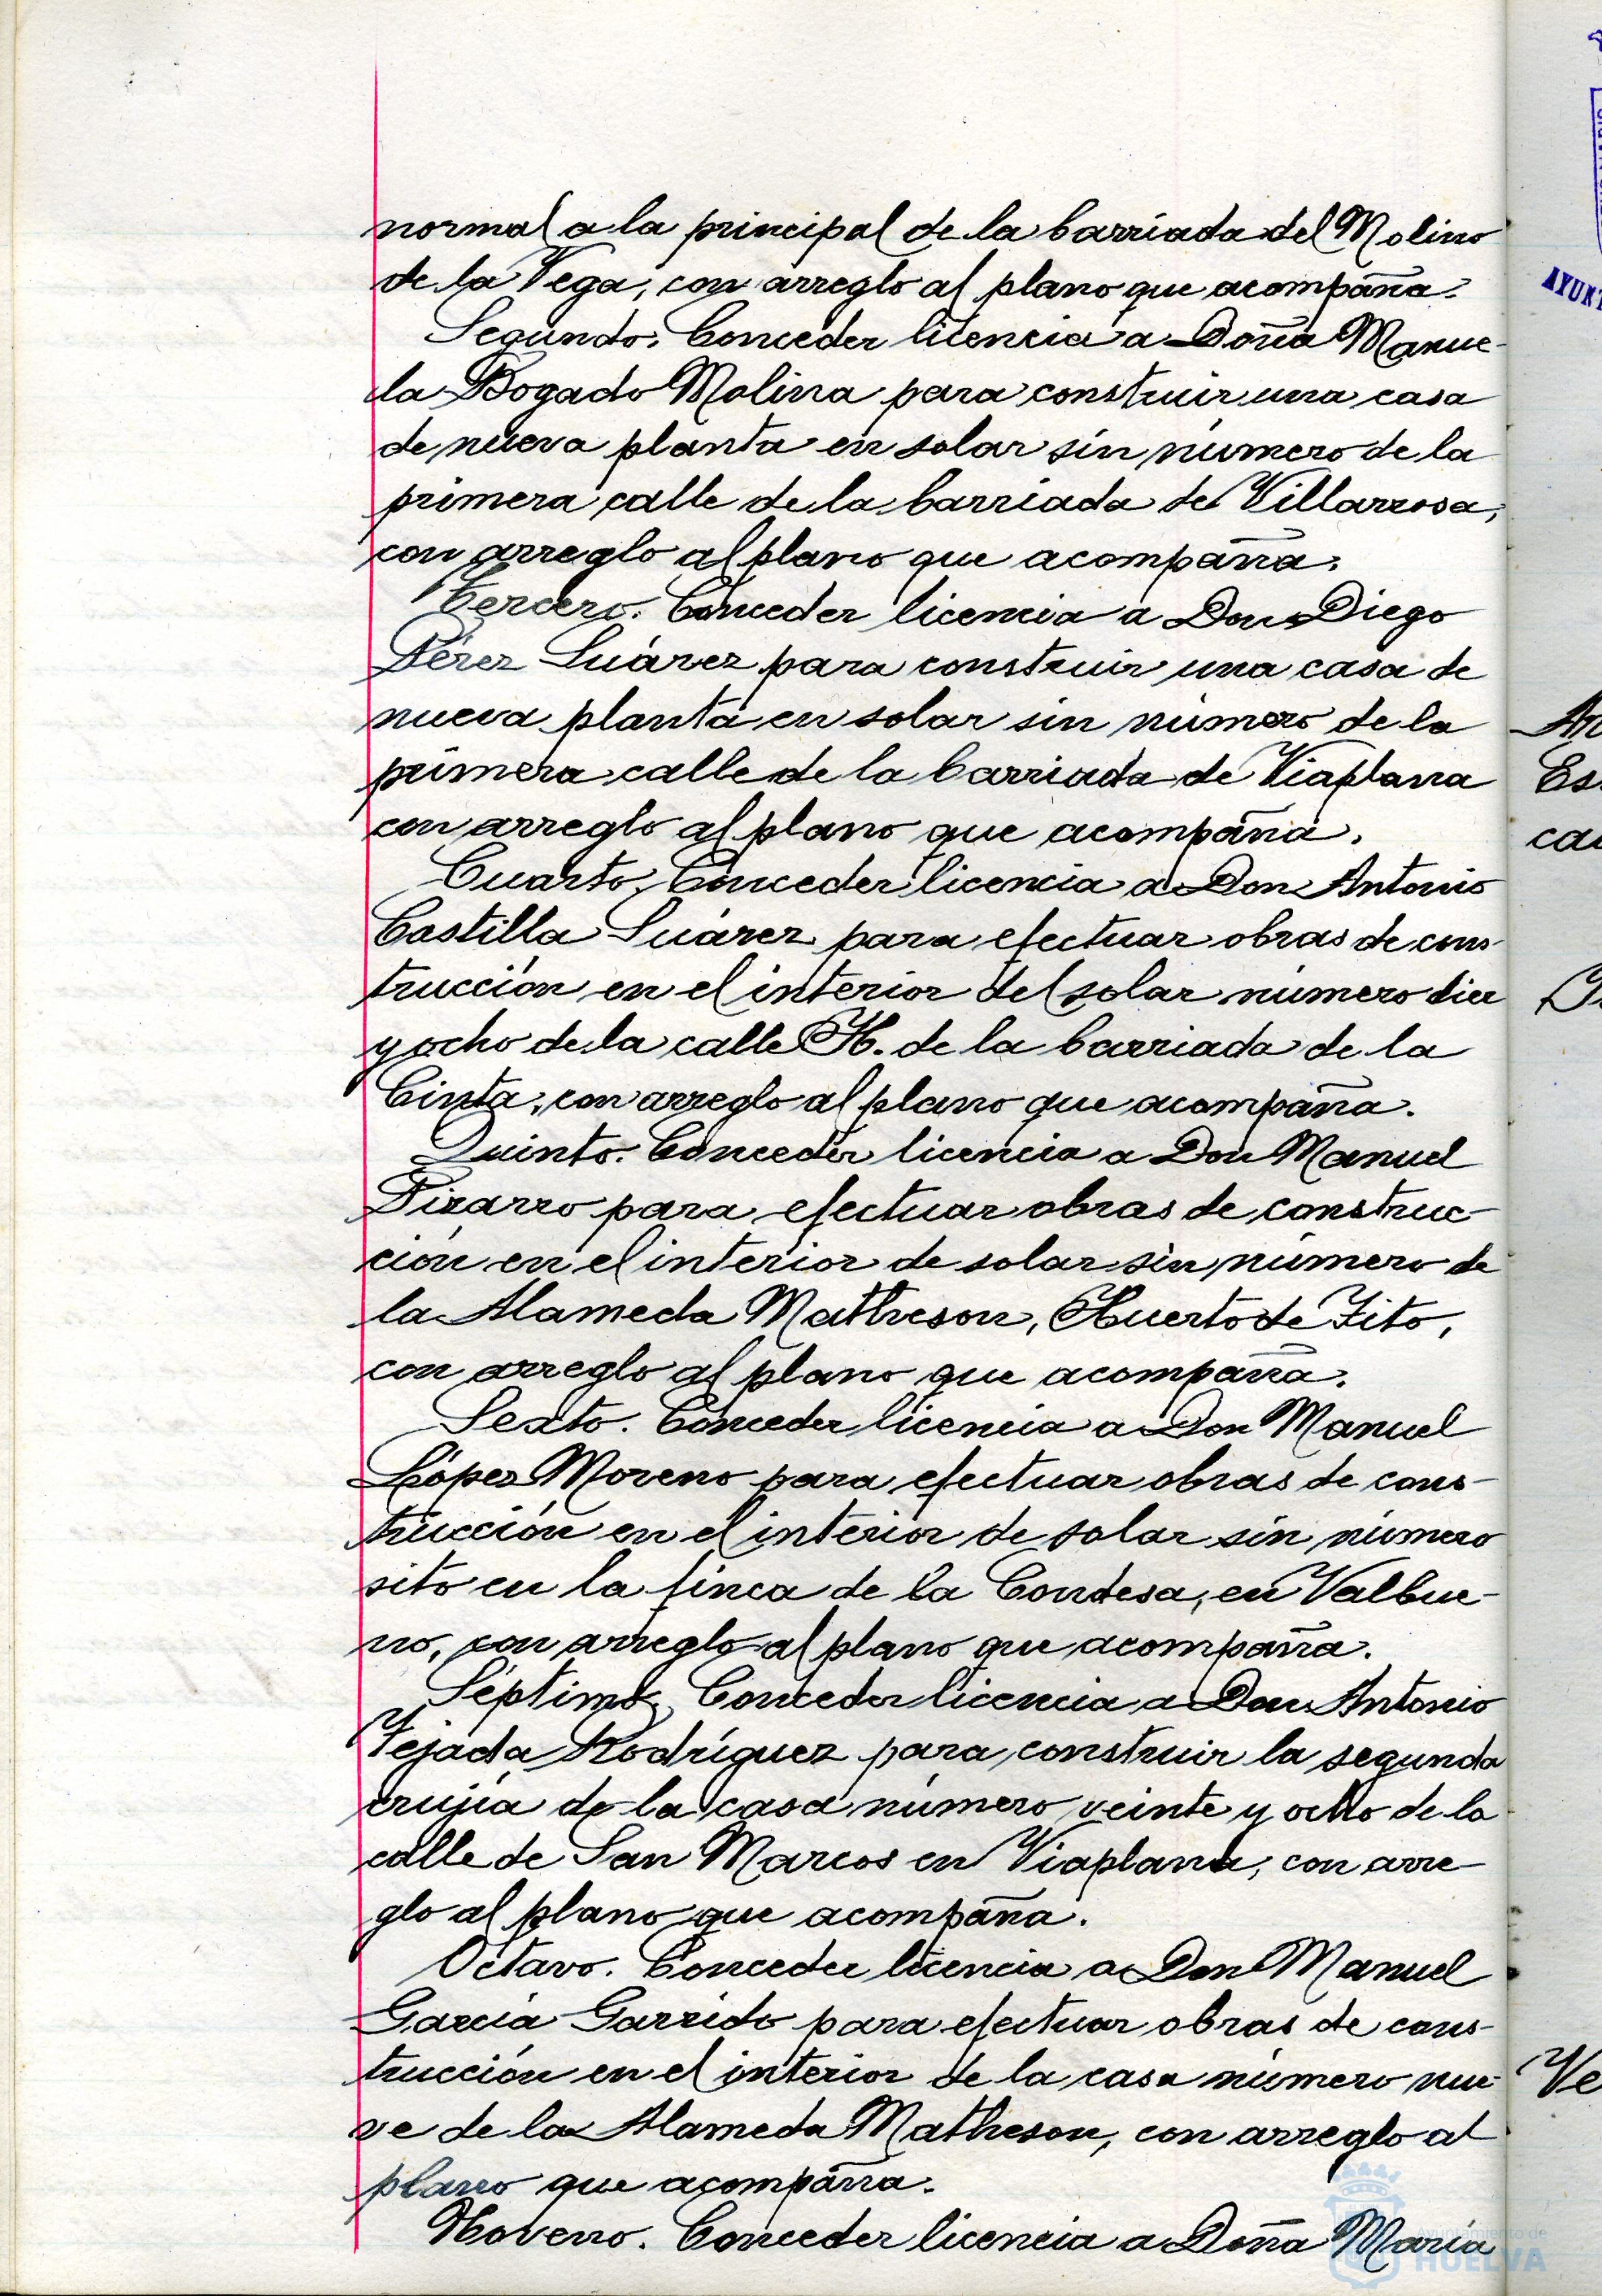 normal a la principal de la barriada del Molino
de la Vega, con arreglo al plano que acompaña.
Segundo. Conceder licencia a Doña Manue-
la Bogado Molina para construir una casa
de nueva planta en solar sin número de la
primera calle de la barriada de Villarrosa,
con arreglo al plano que acompaña.
Tercero. Conceder licencia a Don Diego
Pérez Suárez para construir una casa de
nueva planta en solar sin número de la
primera calle de la barriada de Viaplana
con arreglo al plano que acompaña.
Cuarto. Conceder licencia a Don Antonio
Castilla Suárez para efectuar obras de cons-
trucción en el interior del solar número diez
y ocho de la calle H. de la barriada de la
Cinta, con arreglo al plano que acompaña.
Quinto. Conceder licencia a Don Manuel
Pizarro para efectuar obras de construc-
ción en el interior de solar sin número de
la Alameda Matheson, Huerto de Tito,
con arreglo al plano que acompaña.
Sexto. Conceder licencia a Don Manuel
López Moreno para efectuar obras de cons-
trucción en el interior de solar sin número
sito en la finca de la Condesa, en Valbue-
no, con arreglo al plano que acompaña.
Séptimo. Conceder licencia a Don Antonio
Tejada Rodríguez para construir la segunda
crujía de la casa número veinte y ocho de la
calle de San Marcos en Viaplana, con arre-
glo al plano que acompaña.
Octavo. Conceder licencia a Don Manuel
García Garrido para efectuar obras de cons-
trucción en el interior de la casa número nue-
ve de la Alameda Matheson, con arreglo al
plano que acompaña.
Noveno. Conceder licencia a Doña María
AYUNT
Es
Ve
Ayuntamiento de
HUELVA